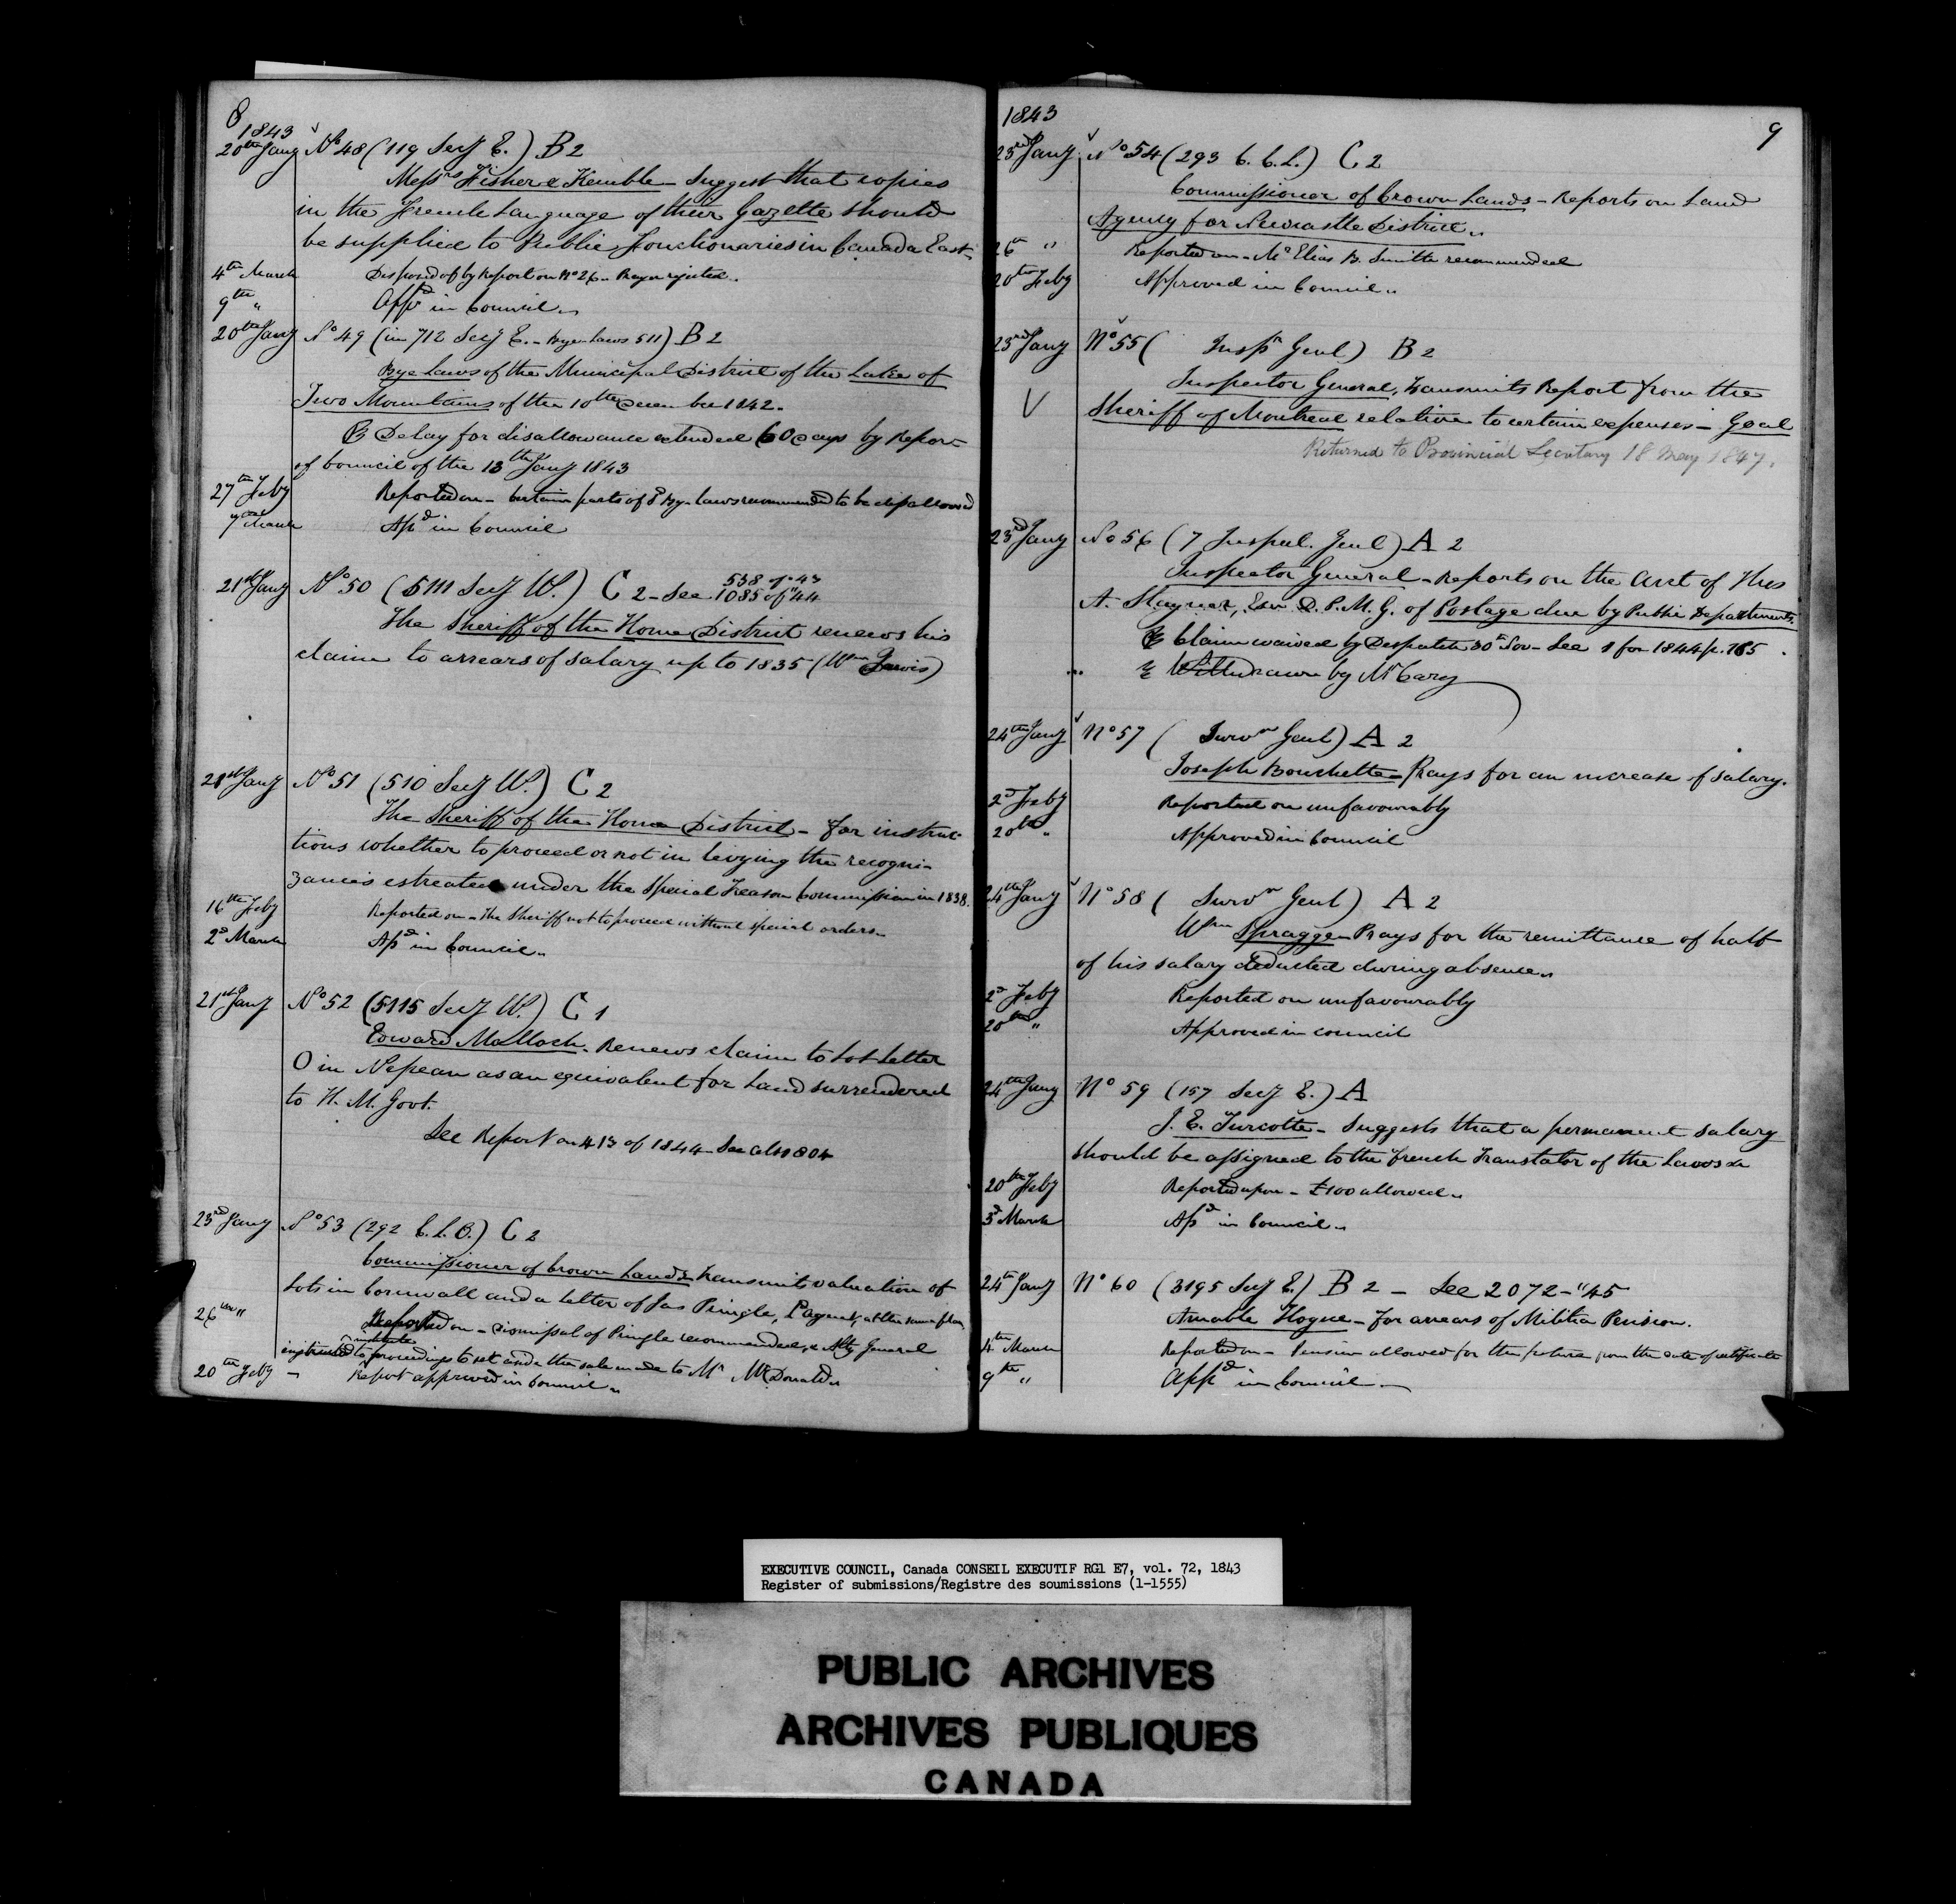 8
1843
20th Jany No 48 (119 Secy E.) B 2
Messrs Fisher & Kemble - Suggest that copies
in the French Language of their Gazette should
be supplied to Public Functionaries in Canada East.
4th March Disposed of by Report on No 26 - Prayer rejected.
9th " Appd in Council
20th Jany No 49 (in 712 Secy E. - Bye Laws 511) B 2
Bye Laws of the Municipal District of the Lake of
Two Mountains of the 10th December 1842.
Delay for disallowance extended 60 days by Report
of Council of the 13th Jany 1843
27th Feby Reported on - Certain parts of sd Bye Laws recommended to be disallowed
7th March Apd in Council
21st Jany No 50 (5111 Secy W.) C 2 - See 538 of "43
1085 of "44
The Sheriff of the Home District renews his
claim to arrears of salary up to 1835 (Wm Jarvis)
21st Jany No 51 (510 Secy W.) C 2
The Sheriff of the Home District - for instruc-
tions whether to proceed or not in levying the recogni-
zances estreated under the Special Treason Commission in 1838.
16th Feby Reported on - The Sheriff not to proceed without special orders
2d March Apd in Council
21st Jany No 52 (5115 Secy W.) C 1
Edward Malloch. Renews claim to Lot Letter
O in Nepean as an equivalent for Land surrendered
to H. M. Govt.
See Report on 413 of 1844 - See also 804
23rd Jany No 53 (292 C. L. O.) C 2
Commissioner of Crown Lands Transmits valuation of
Lots in Cornwall and a letter of Jas Pringle, Dt Agent, at the same place
26th " Reported on - Dismissal of Pringle recommended, & Atty General
institute
instructed to proceedings to set aside the sale made to Mr McDonald
20th Feby - Report approved in Council
9
1843
23rd Jany No 54 (293 C. C. L.) C 2
Commissioner of Crown Lands - Reports on Land
Agency for Newcastle District
26th " Reported on - Mr Elias B. Smith recommended
20th Feby Approved in Council
23rd Jany No 55 ( Inspr Genl) B 2
Inspector General, Transmits Report from the
Sheriff of Montreal relative to certain expenses - Goal
Returned to Provincial Secretary 18 May 1847.
23rd Jany No 56 (7 Inspect. Genl) A 2
Inspector General - Reports on the acct of Thos
A. Stayner, Esqr D. P. M. G. of Postage due by Public Departments.
Claim waived by Despatch 30th Nov - See 1 for 1844 p. 165
Withdrawn by Mr Cary
24th Jany No 57 ( Survr Genl) A 2
Joseph Bouchette - Prays for an increase of salary.
2d Feby Reported on unfavourably
20th " Approved in Council
24th Jany No 58 ( Survr Genl) A 2
Wm Spragge - Prays for the remittance of half
of his salary deducted during absence
2d Feby Reported on unfavourably
20th " Approved in council
24th Jany No 59 (157 Secy E.) A
J. E. Turcotte - Suggests that a permanent salary
should be assigned to the French Translator of the Laws &c
20th Feby Reported upon - £100 allowed
3d March Apd in Council
24th Jany No 60 (3195 Secy E.) B 2 - See 2072 - "45
Amable Hogue - For arrears of Militia Pension.
4th March Reported on - Pension allowed for the future from the date of certificate
9th " Appd in Council
EXECUTIVE COUNCIL, Canada CONSEIL EXECUTIF RG1 E7, vol. 72, 1843
Register of submissions/Registre des soumissions (1-1555)
PUBLIC ARCHIVES
ARCHIVES PUBLIQUES
CANADA